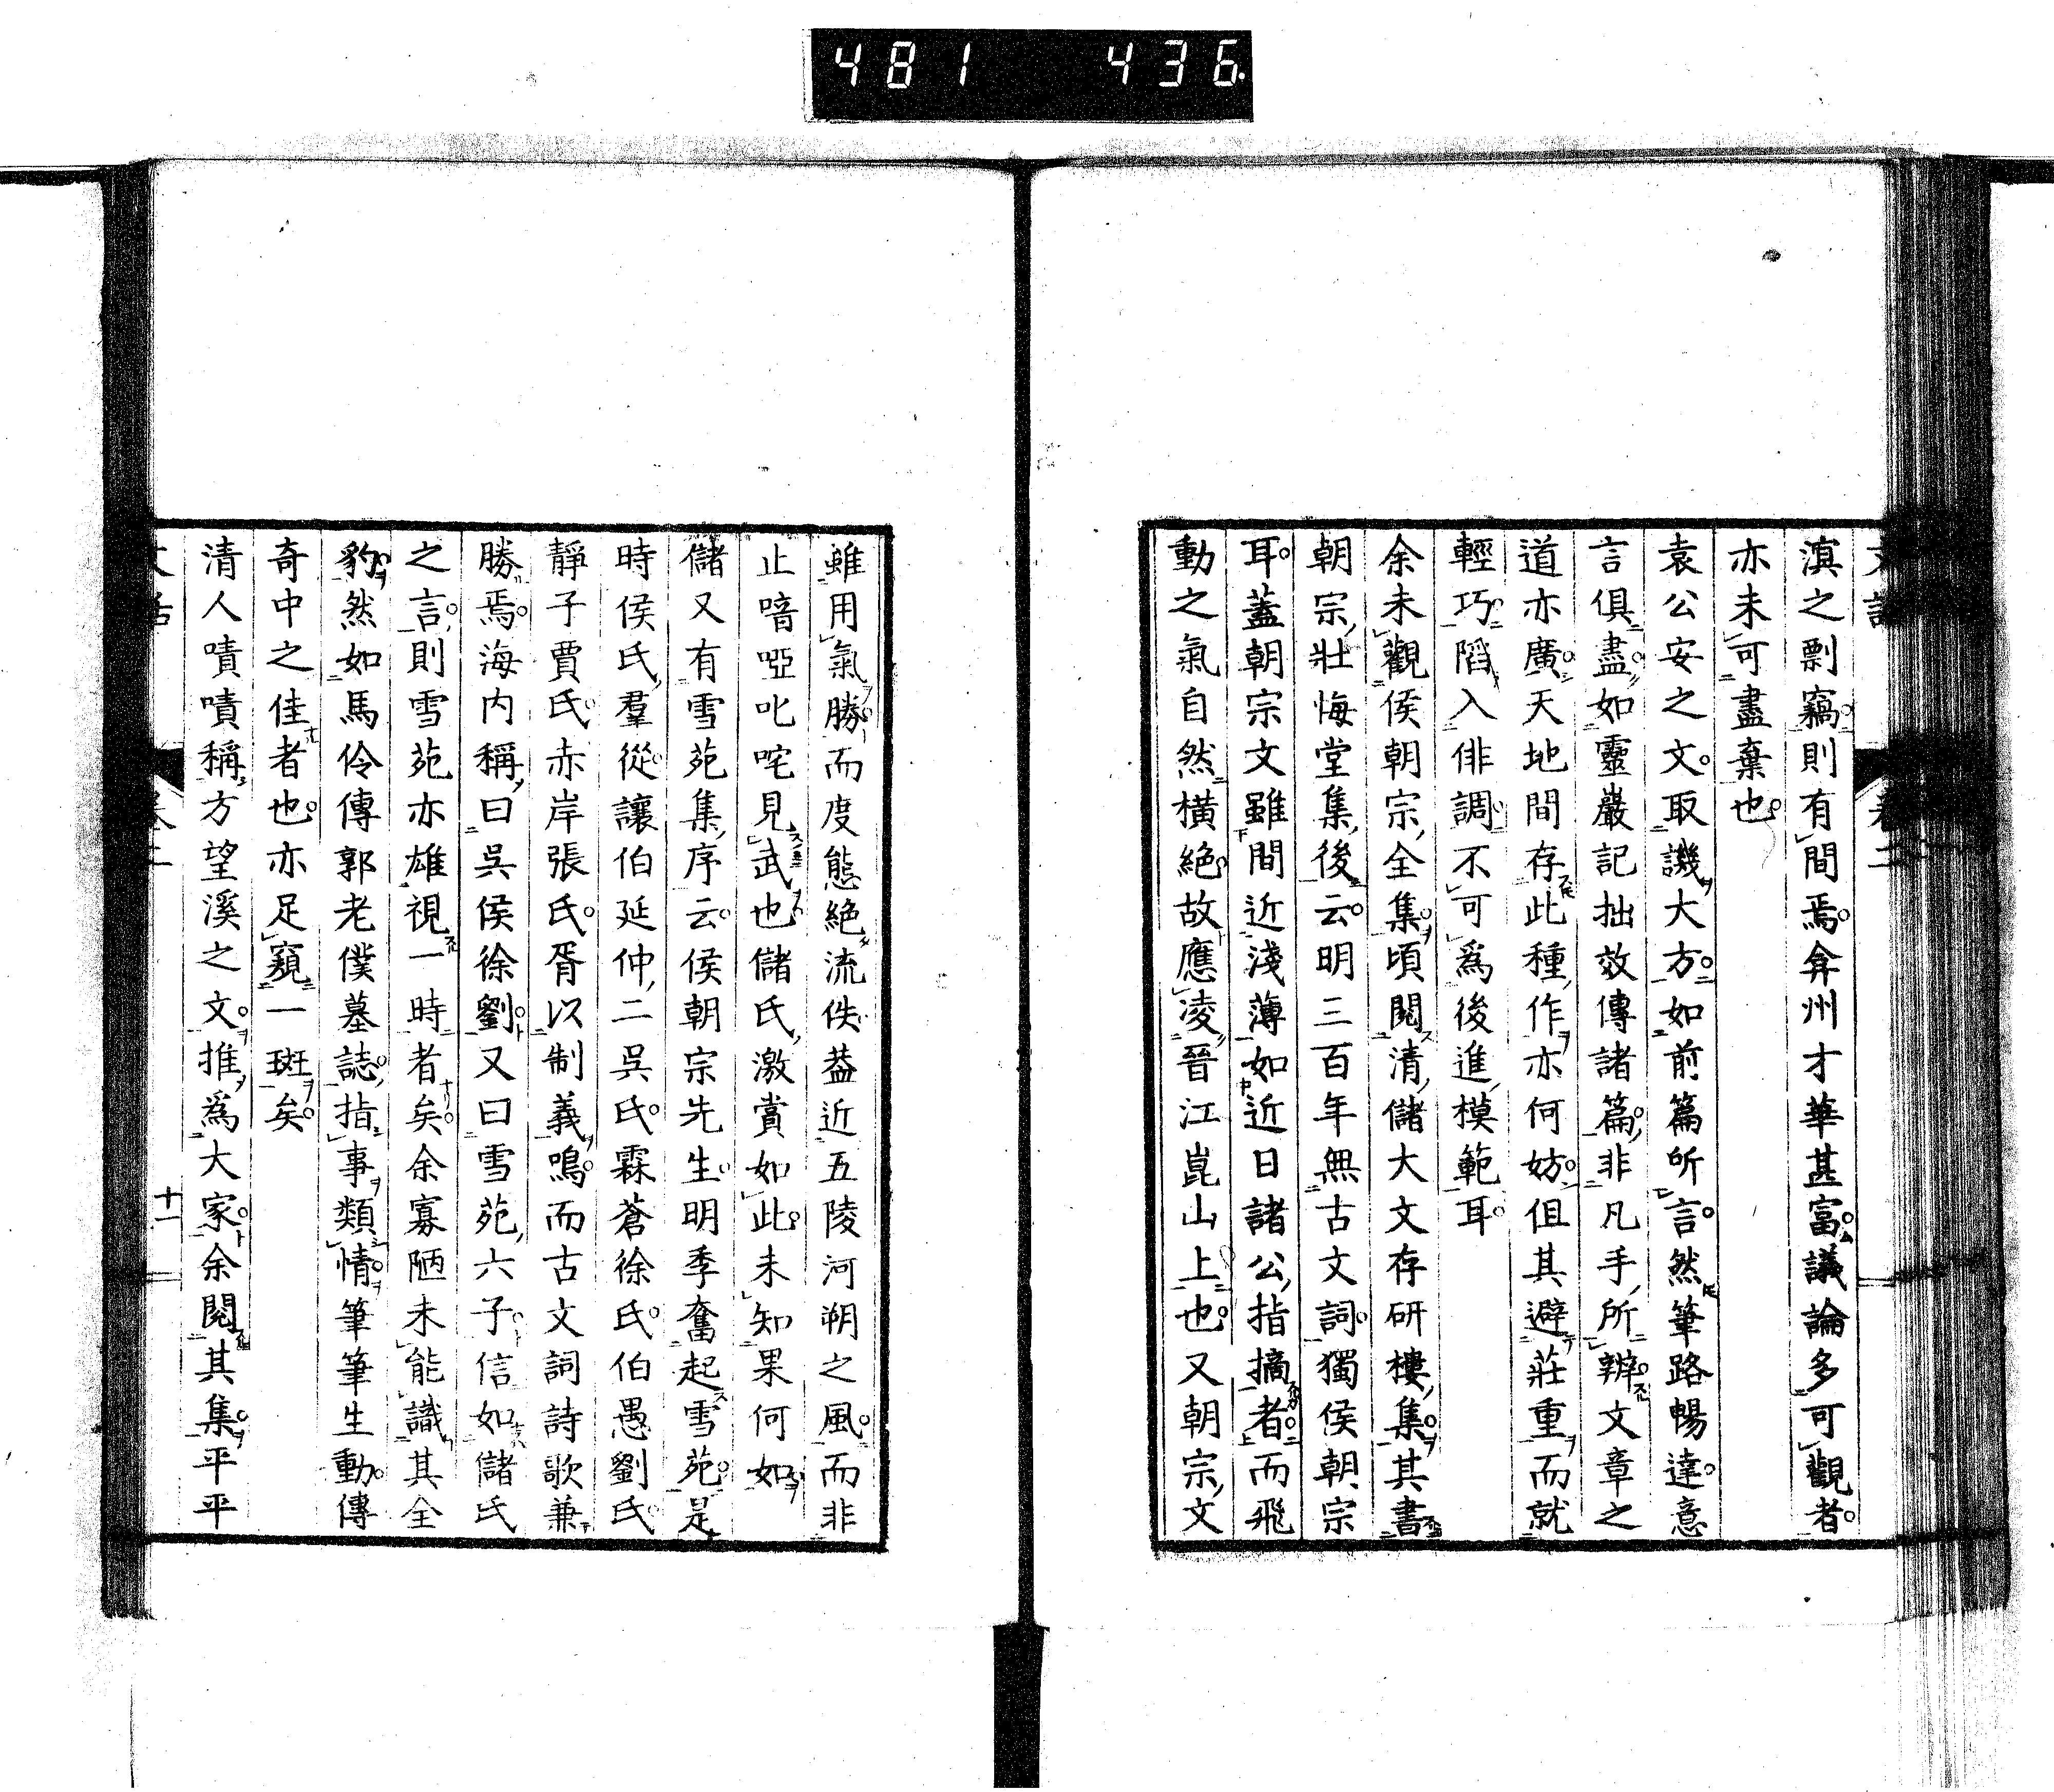 481 436
滇之剽竊則有間焉弇州才華甚富議論多可觀者
亦未可盡棄也
袁公安之文取譏大方如前篇所言然筆路暢達意
言俱盡如靈巖記拙效傳諸篇非凡手所辨文章之
道亦廣天地間存此種作亦何妨但其避莊重而就
輕巧陷入俳調不可爲後進模範耳
余未觀侯朝宗全集頃閱清儲大文存研樓集其書
朝宗壯悔堂集後云明三百年無古文詞獨侯朝宗
耳蓋朝宗文雖間近淺薄如近日諸公指摘者而飛
動之氣自然橫絶故應凌晉江崑山上也又朝宗文
雖用氣勝而度態絶流佚蓋近五陵河朔之風而非
止喑啞叱咤見武也儲氏激賞如此未知果何如
儲又有雪苑集序云侯朝宗先生明季奮起雪苑是
時侯氏羣從讓伯延仲二吳氏霖蒼徐氏伯愚劉氏
靜子賈氏赤岸張氏胥以制義鳴而古文詞詩歌兼
勝焉海内稱曰吳侯徐劉又曰雪苑六子信如儲氏
之言則雪苑亦雄視一時者矣余寡陋未能識其全
豹然如馬伶傳郭老僕墓誌指事類情筆筆生動傳
奇中之佳者也亦足窺一斑矣
清人嘖嘖稱方望溪之文推爲大家余閱其集平平
十一